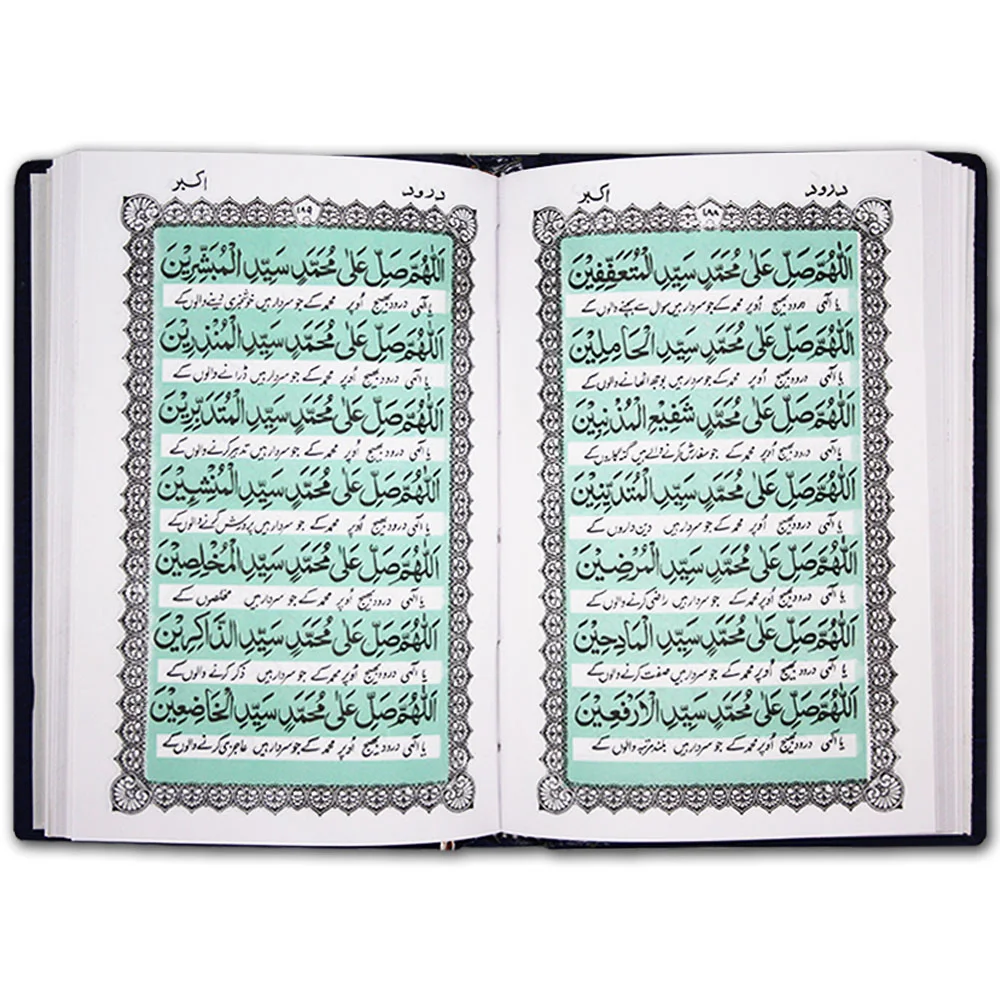 درود اکبر
۱۸۸
اَللّٰهُمَّ صَلِّ عَلٰی مُحَمَّدٍ سَیِّدِ الْمُتَعَفِّفِیْنَ
یا الٰہی درود بھیج اُوپر محمد کے جو سردار ہیں سوال سے بچنے والوں کے
اَللّٰهُمَّ صَلِّ عَلٰی مُحَمَّدٍ سَیِّدِ الْحَامِلِیْنَ
یا الٰہی درود بھیج اُوپر محمد کے جو سردار ہیں بوجھ اٹھانے والوں کے
اَللّٰهُمَّ صَلِّ عَلٰی مُحَمَّدٍ شَفِیْعِ الْمُذْنِبِیْنَ
یا الٰہی درود بھیج اُوپر محمد کے جو سفارش کرنے والے ہیں گنہگاروں کے
اَللّٰهُمَّ صَلِّ عَلٰی مُحَمَّدٍ سَیِّدِ الْمُتَدَیِّنِیْنَ
یا الٰہی درود بھیج اُوپر محمد کے جو سردار ہیں دین داروں کے
اَللّٰهُمَّ صَلِّ عَلٰی مُحَمَّدٍ سَیِّدِ الْمُرْضِیْنَ
یا الٰہی درود بھیج اُوپر محمد کے جو سردار ہیں راضی کرنے والوں کے
اَللّٰهُمَّ صَلِّ عَلٰی مُحَمَّدٍ سَیِّدِ الْمَادِحِیْنَ
یا الٰہی درود بھیج اُوپر محمد کے جو سردار ہیں صفت کرنے والوں کے
اَللّٰهُمَّ صَلِّ عَلٰی مُحَمَّدٍ سَیِّدِ الْاَرْفَعِیْنَ
یا الٰہی درود بھیج اُوپر محمد کے جو سردار ہیں بلند مرتبہ والوں کے
درود اکبر
۱۸۹
اَللّٰهُمَّ صَلِّ عَلٰی مُحَمَّدٍ سَیِّدِ الْمُبَشِّرِیْنَ
یا الٰہی درود بھیج اُوپر محمد کے جو سردار ہیں خوشخبری دینے والوں کے
اَللّٰهُمَّ صَلِّ عَلٰی مُحَمَّدٍ سَیِّدِ الْمُنْذِرِیْنَ
یا الٰہی درود بھیج اُوپر محمد کے جو سردار ہیں ڈرانے والوں کے
اَللّٰهُمَّ صَلِّ عَلٰی مُحَمَّدٍ سَیِّدِ الْمُتَدَبِّرِیْنَ
یا الٰہی درود بھیج اُوپر محمد کے جو سردار ہیں تدبیر کرنے والوں کے
اَللّٰهُمَّ صَلِّ عَلٰی مُحَمَّدٍ سَیِّدِ الْمُنْشِیِٕنَ
یا الٰہی درود بھیج اُوپر محمد کے جو سردار ہیں پرورش کرنے والوں کے
اَللّٰهُمَّ صَلِّ عَلٰی مُحَمَّدٍ سَیِّدِ الْمُخْلِصِیْنَ
یا الٰہی درود بھیج اُوپر محمد کے جو سردار ہیں مخلصوں کے
اَللّٰهُمَّ صَلِّ عَلٰی مُحَمَّدٍ سَیِّدِ الذَّاكِرِیْنَ
یا الٰہی درود بھیج اُوپر محمد کے جو سردار ہیں ذکر کرنے والوں کے
اَللّٰهُمَّ صَلِّ عَلٰی مُحَمَّدٍ سَیِّدِ الْخَاضِعِیْنَ
یا الٰہی درود بھیج اُوپر محمد کے جو سردار ہیں عاجزی کرنے والوں کے